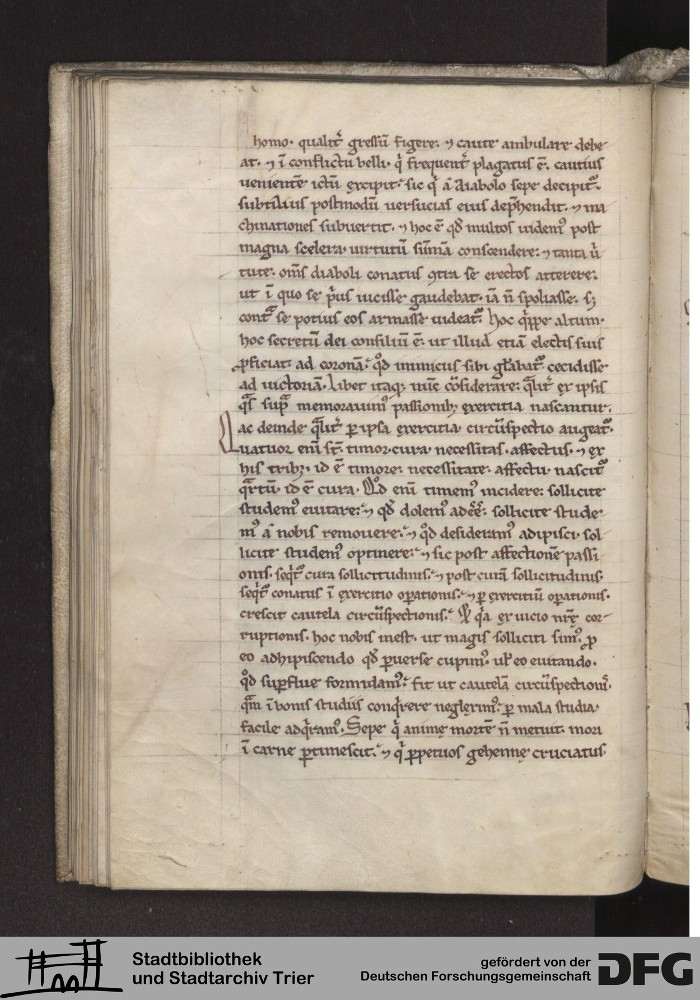 homo. qualit̄ gressū figere. ⁊ caute ambulare debe
at. ⁊ ī conflictu belli. qͥ frequent̄ plagatus ē. cautius
uenientē ictū excipit. sic qͥ a diabolo sepe decipit᷑.
subtilius postmodū uersucias eius dep̄hendit. ⁊ ma
chinationes subuertit. ⁊ hoc ē qd̄ multos uidemꝰ post
magna scelera. uirtutū sūmā conscendere. ⁊ tanta uͥ
tute. om̄s diaboli conatus ꝯtra se erectos atterere.
ut ī quo se p̄us uicisse gaudebat. iā n̄ spoliasse. sꝫ
contͣ se potius eos armasse uideat᷑. Hoc qͥppe altum.
hoc secretū dei consiliū ē. ut illud etiā electis suis
ꝓficiat ad coronā. qd̄ inimicus sibi gͣbat᷑ cecidisse
ad uictoriā. Libet itaqꝫ nūc cōsiderare. qͣlit̄ ex ipsis
qͣs supͣ memorauimꝰ passionibꝫ exercitia nascantur.
ac deinde qͣlit̄ ꝑ ipsa exercitia circūspectio augeat᷑.
Quatuor enī st̄. timor. cura. necessitas. affectus. ⁊ ex
his tribꝫ. id ē timore. necessitate. affectu nascit᷑
qͣrtū. id ē cura. Qd̄ enī timemꝰ incidere. sollicite
studemꝰ euitare. ⁊ qd̄ dolemꝰ adeē. sollicite stude
mꝰ a nobis remouere. ⁊ qd̄ desideramꝰ adipisci. sol
licite studemꝰ optinere. ⁊ sic post affectionē passi
onis. seqͥt᷑ cura sollicitudinis. ⁊ post curā sollicitudinis.
seqͥt᷑ conatus ī exercitio oꝑationis. ⁊ ꝑ exercitiū oꝑationis.
crescit cautela circūspectionis. qͥa ex uicio nr̄ę cor
ruptionis. hoc nobis inest. ut magis solliciti simꝰ ꝓ
eo adhipiscendo qd̄ ꝑuerse cupimꝰ. ul̄ eo euitando.
qd̄ suꝑflue formidamꝰ. fit ut cautelā circūspectionis.
qͣm ī bonis studiis conqͥrere neglegimꝰ. ꝑ mala studia
facile adqͥramꝰ. Sepe qͥ animę mortē n̄ metuit. mori
ī carne ꝑtimescit. ⁊ qͥ ꝑpetuos gehennę cruciatus
Stadtbibliothek
und Stadtarchiv Trier
gefördert von der
Deutschen Forschungsgemeinschaft
DFG